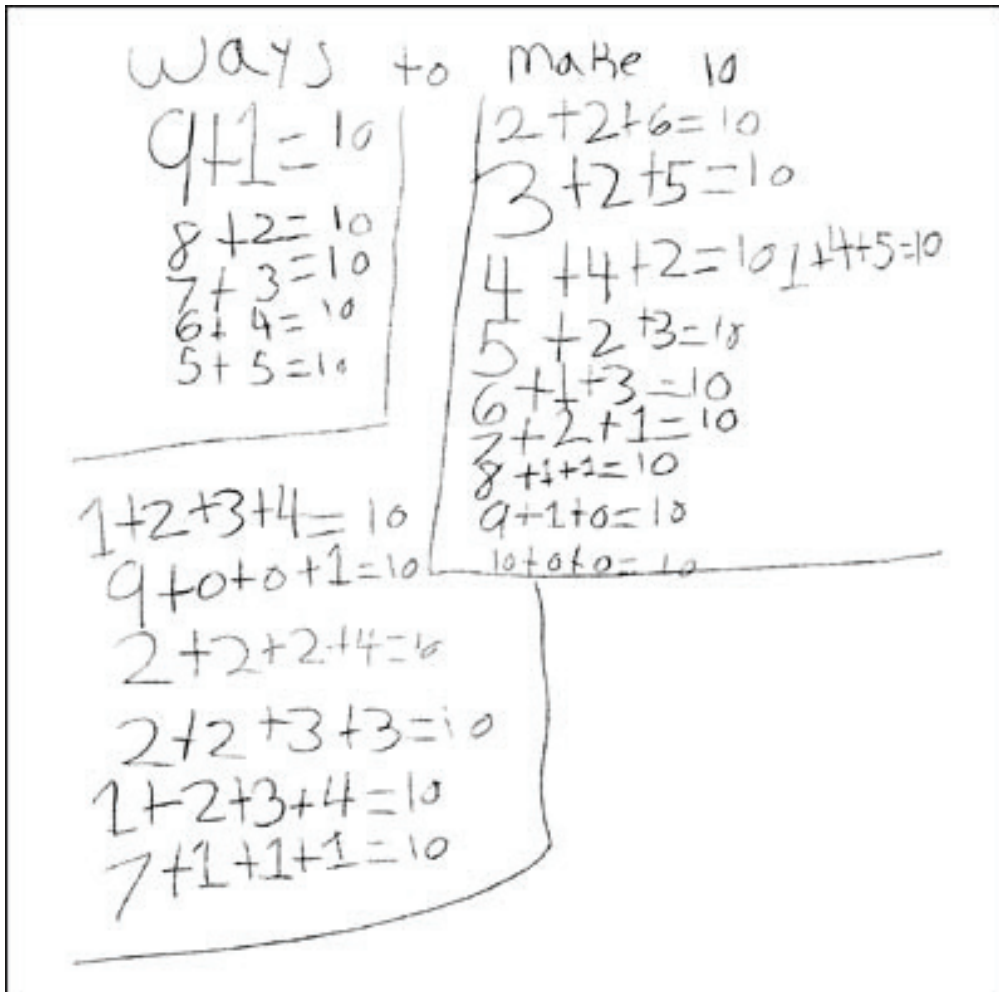 ways to make 10
9+1=10
8+2=10
7+3=10
6+4=10
5+5=10
2+2+6=10
3+2+5=10
4+4+2=10 1+4+5=10
5+2+3=10
6+1+3=10
7+2+1=10
8+1+1=10
9+1+0=10
10+0+0=10
1+2+3+4=10
9+0+0+1=10
2+2+2+4=10
2+2+3+3=10
1+2+3+4=10
7+1+1+1=10